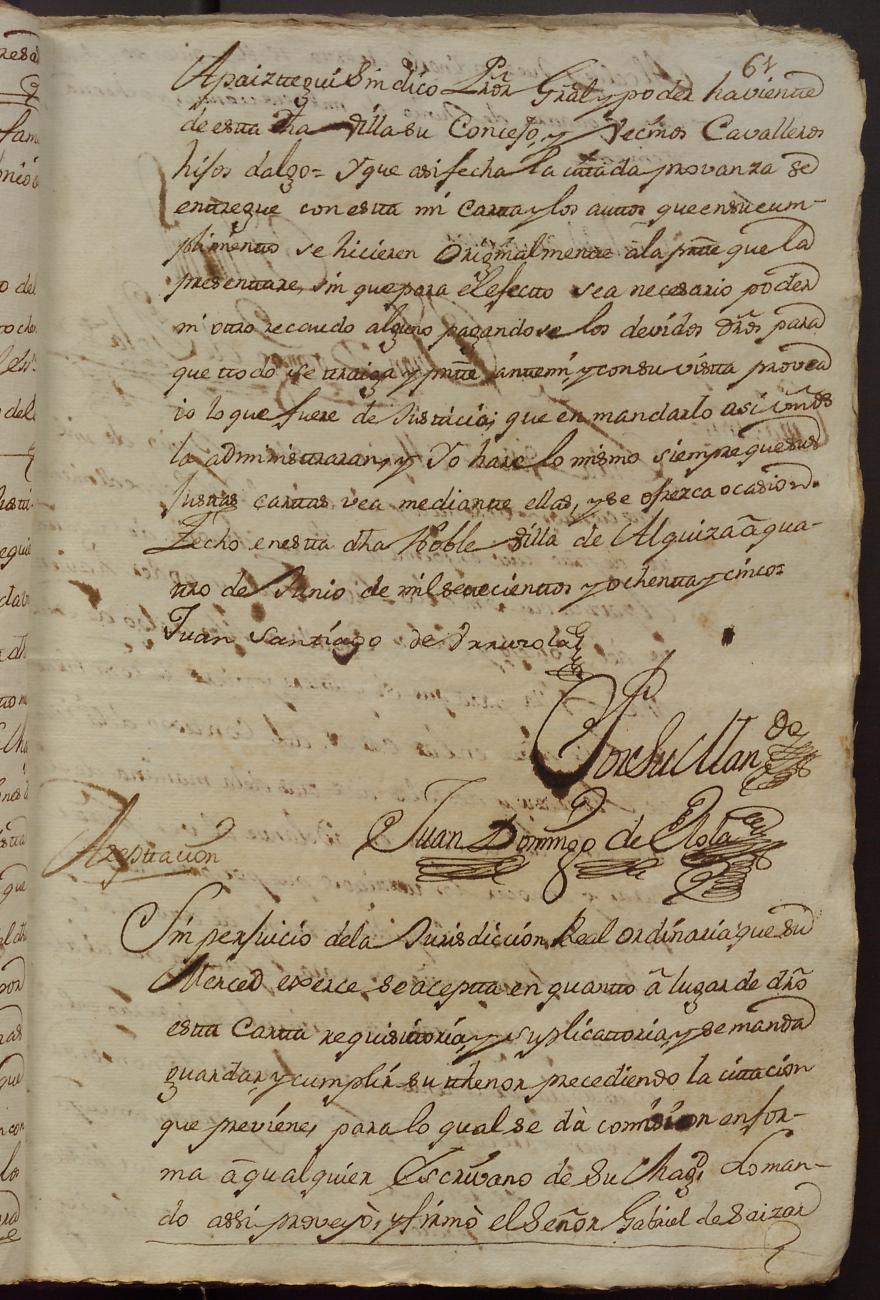 64
Apaiztegui Sindico Pror Gral, y poder haviente
de esta dha Villa su Concejo, y Vecinos Cavalleros
hijos dalgo = Y que asi fecha la citada provanza se
entregue con esta mi Carta y los autos que en su cum-
plimiento se hicieren Originalmente â la pñte que la
presentare, sin que para el efecto sea necesario poder
ni otro recaudo alguno pagandose los devidos drõs para
que todo se traiga y pñte antemi, y con su vista provea
io lo que fuere de Justicia; que en mandarlo asi vmds
la administraran, y Yo hare lo mismo siempre que sus
Justas cartas vea mediante ellas, y se ofrezca ocasion.
Fecho en esta dha Noble Villa de Alquiza â qua-
tro de Junio de mil setecientos y ochenta y cinco =
Juan Santiago de Yrruviola
Por su Mando
Juan Domingo de
Azeptacion
Sin perjuicio de la Jurisdiccion Real ordinaria que su
Merced exerce se acepta en quanto â lugar de drõ
esta Carta requisitoria, y suplicatoria, y se manda
guardar, y cumplir su thenor precediendo la citacion
que previene, para lo qual se dà comision en for-
ma â qualquier Escrivano de Su Magd Lo man-
do assi proveyò, y firmò el Señor Gabriel de Saizar